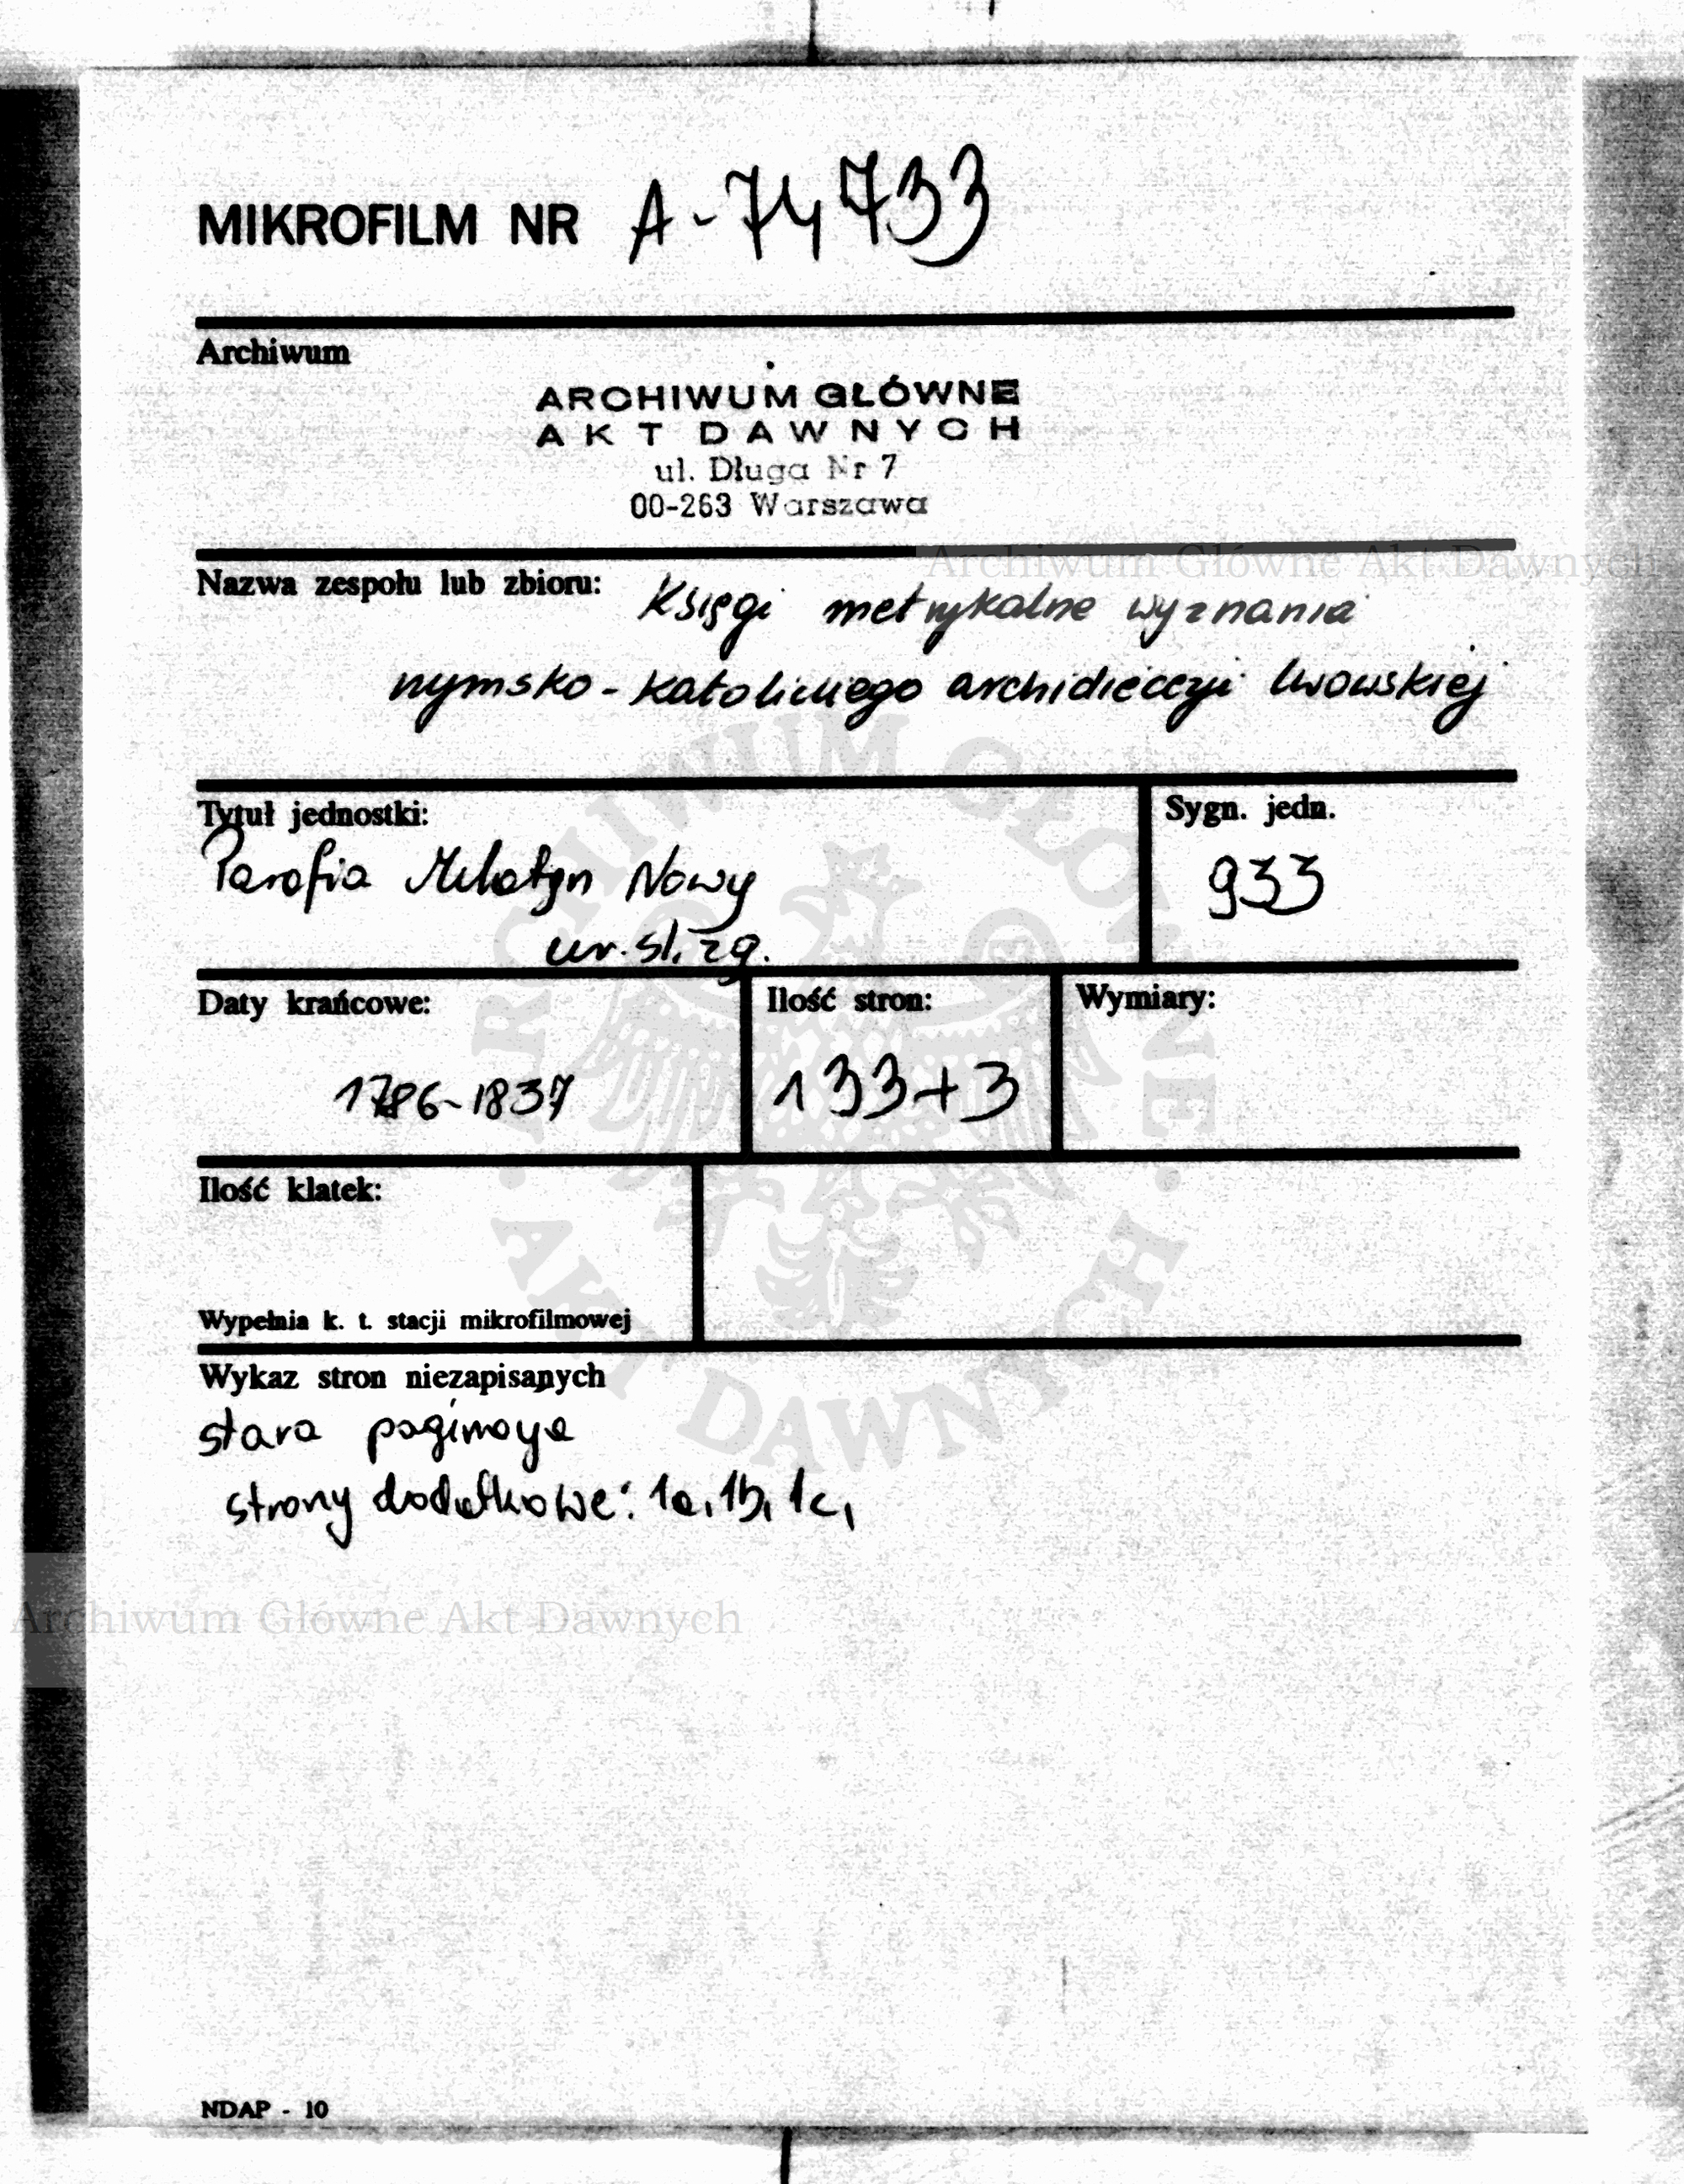 MIKROFILM NR A-74733
Archiwum
ARCHIWUM GŁÓWNE
AKT DAWNYCH
ul. Długa Nr 7
00-263 Warszawa
Archiwum Główne Akt Dawnych
Nazwa zespołu lub zbioru: Księgi metrykalne wyznania
rzymsko-katolickiego archidiecezji lwowskiej
Tytuł jednostki:
Sygn. jedn.
Parafia Milatyn Nowy
933
ur. śl. zg.
Daty krańcowe:
Ilość stron:
Wymiary:
1786-1837
133+3
Ilość klatek:
Wypełnia k. t. stacji mikrofilmowej
Wykaz stron niezapisanych
stara paginacja
strony dodatkowe: 1a, 1b, 1c,
Archiwum Główne Akt Dawnych
ARCHIWUM GŁÓWNE · AKT DAWNYCH ·
NDAP - 10